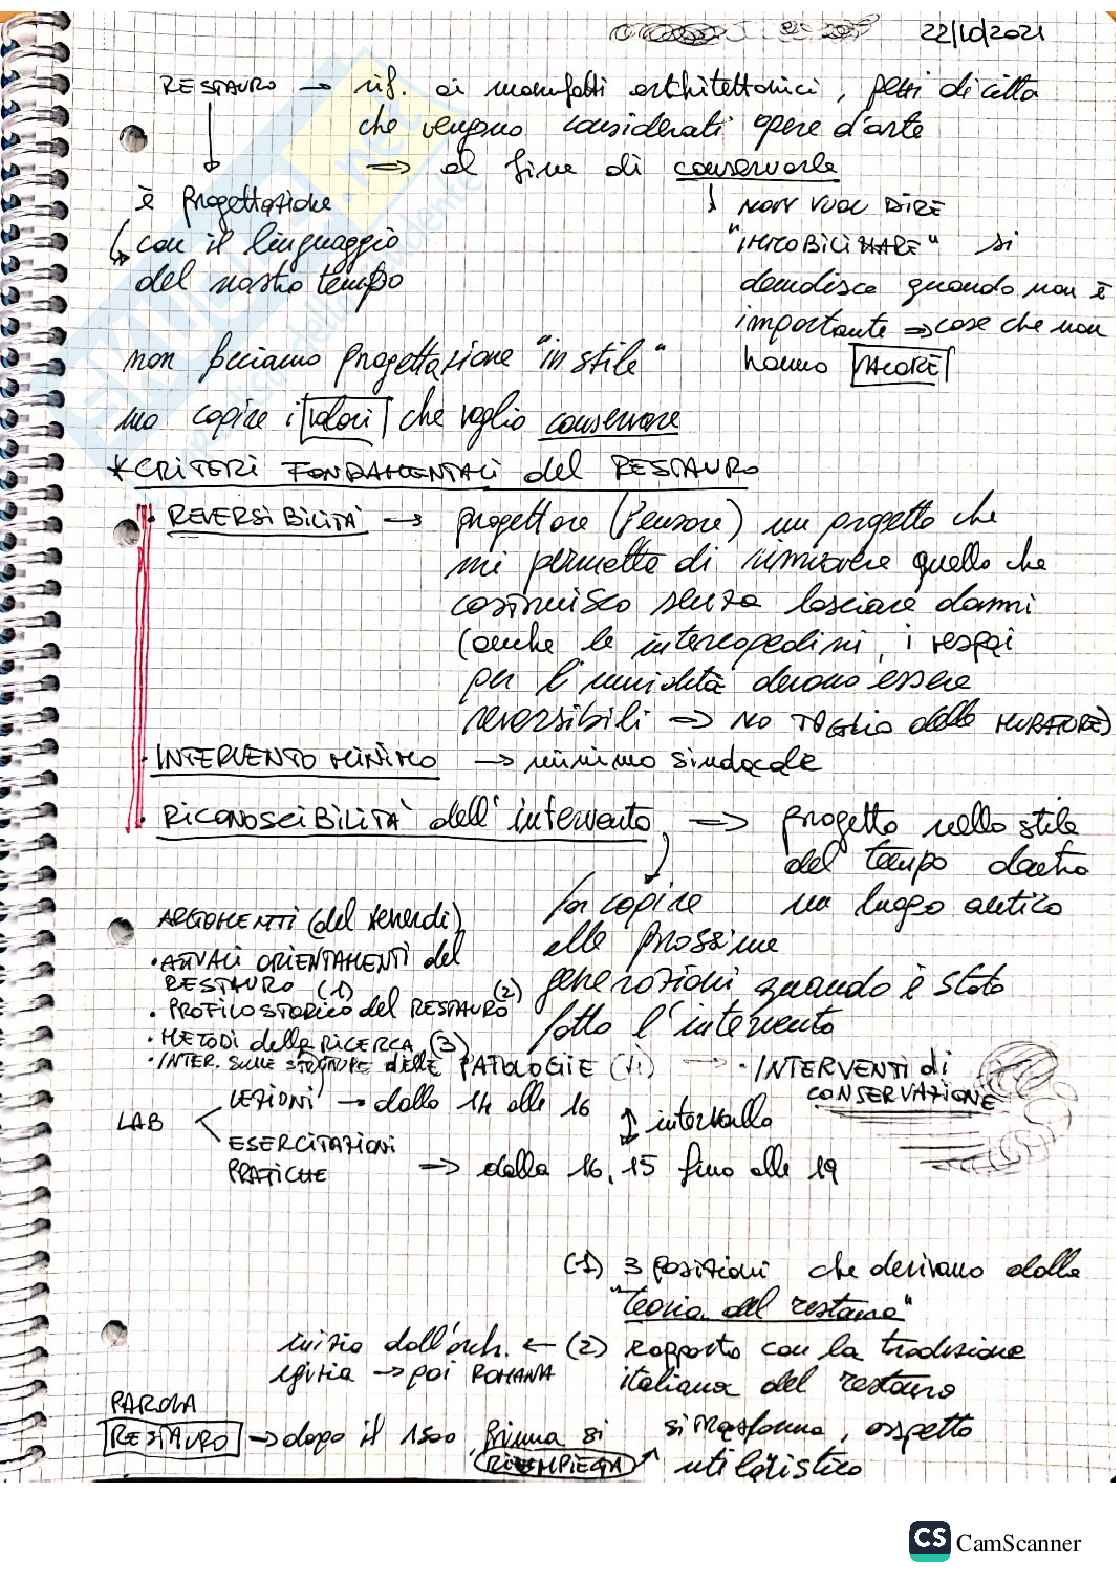 22/10/2021
RESTAURO → rif. ai manufatti architettonici, pezzi di città
che vengono considerati opere d'arte
⇒ al fine di conservarle
è progettazione
↳ con il linguaggio
del nostro tempo
↓ NON VUOL DIRE
"IMMOBILIZZARE" si
demolisce quando non è
importante ⇒ cose che non
hanno VALORE
non facciamo progettazione "in stile"
ma capire i valori che voglio conservare
* CRITERI FONDAMENTALI del RESTAURO
· REVERSIBILITÀ → progettare (Pensare) un progetto che
mi permetta di rimuovere quello che
costruisco senza lasciare danni
(anche le intercapedini, i vespai
per l'umidità devono essere
reversibili ⇒ NO TAGLIO delle MURATURE)
· INTERVENTO MINIMO → minimo sindacale
· RICONOSCIBILITÀ dell'intervento → progetto nello stile
del tempo dentro
un luogo antico
far capire
alle prossime
generazioni quando è stato
fatto l'intervento
ARGOMENTI (del venerdì)
· ATTUALI ORIENTAMENTI del
RESTAURO (1)
· PROFILO STORICO del RESTAURO (2)
· METODI della RICERCA (3)
· INTER. SULLE STRUTTURE delle PATOLOGIE (4) → · INTERVENTI di
CONSERVAZIONE
LAB
LEZIONI → dalle 14 alle 16
↕ intervallo
ESERCITAZIONI
PRATICHE → dalle 16,15 fino alle 19
(1) 3 posizioni che derivano dalla
"teoria del restauro"
inizia dall'arch. ← (2) rapporto con la tradizione
egizia → poi ROMANA italiana del restauro
PAROLA
RESTAURO → dopo il 1800, prima si RIEMPIEGA
si trasforma, aspetto
utilaristico
CS CamScanner